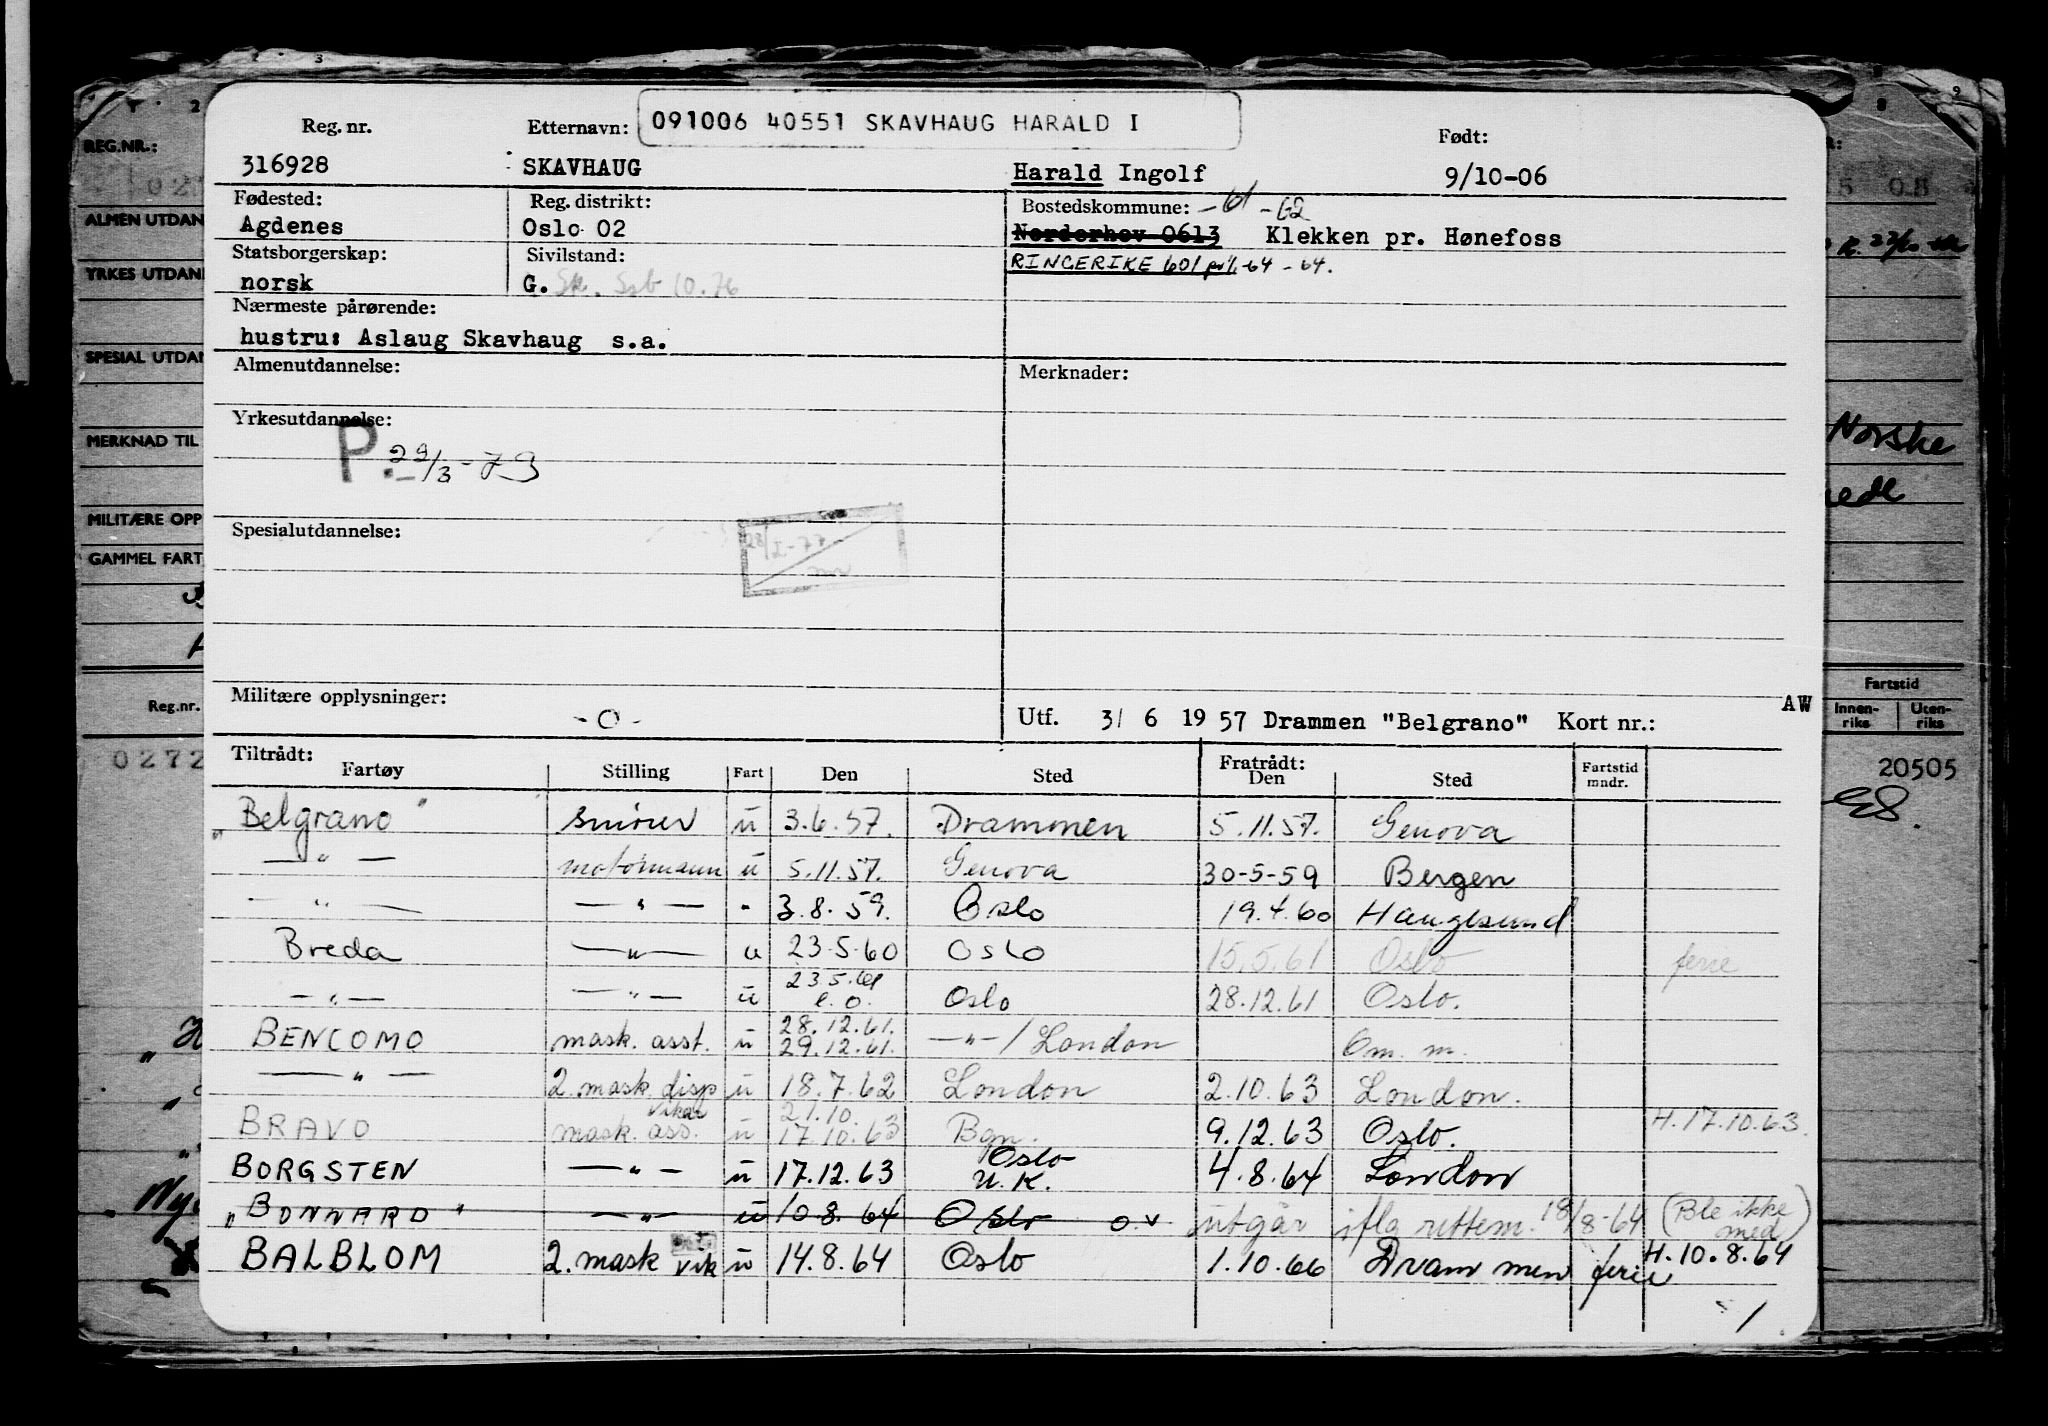 Reg. nr. Etternavn: 091006 40551 SKAVHAUG HARALD I Født:
316928 SKAVHAUG Harald Ingolf 9/10-06
Fødested: Reg. distrikt: Bostedskommune: -61 -62
Agdenes Oslo 02 Norderhov 0613 Klekken pr. Hønefoss
Statsborgerskap: Sivilstand: RINGERIKE 601 pr 1/1-64 - 64.
norsk G. Sk. Ssb 10.76
Nærmeste pårørende:
hustru: Aslaug Skavhaug s.a.
Almenutdannelse: Merknader:
Yrkesutdannelse:
P. 29/3-73
Spesialutdannelse:
28/I-77
Militære opplysninger: -O- Utf. 3/ 6 19 57 Drammen "Belgrano" Kort nr.: AW
Tiltrådt: Fratrådt:
Fartøy Stilling Fart Den Sted Den Sted Fartstid mndr.
"Belgrano" smører u 3.6.57. Drammen 5.11.57. Genova
—"— motormann u 5.11.57. Genova 30-5-59 Bergen
—"— —"— " 3.8.59. Oslo 19.4.60 Haugesund
Breda —"— u 23-5-60 Oslo 15.5.61 Oslo ferie
—"— —"— u 23.5.61 e.o. Oslo 28.12.61 Oslo.
BENCOMO mask. asst. u 28.12.61. 29.12.61. —"—/London Om. m.
—"— 2. mask. disp u 18.7.62 London 2.10.63 London.
BRAVO mask. ass. vikar u 21.10. 17.10.63 Bgn. 9.12.63 Oslo. H.17.10.63.
BORGSTEN —"— u 17.12.63 Oslo U.K. 4.8.64 London
"BONNARD" —"— u 10.8.64 Oslo o.v utgår ifla rettem. 18/8-64 (Ble ikke med)
BALBLOM 2. mask vik u 14.8.64 Oslo 1.10.66 Drammen ferie H.10.8.64
1
REG.NR.:
ALMEN UTDAN
YRKES UTDAN
SPESIAL UTDAN
MERKNAD TIL
MILITÆRE OPP
GAMMEL FART
Reg.nr.
0272
Norske
Fartstid
Innenriks Utenriks
20505